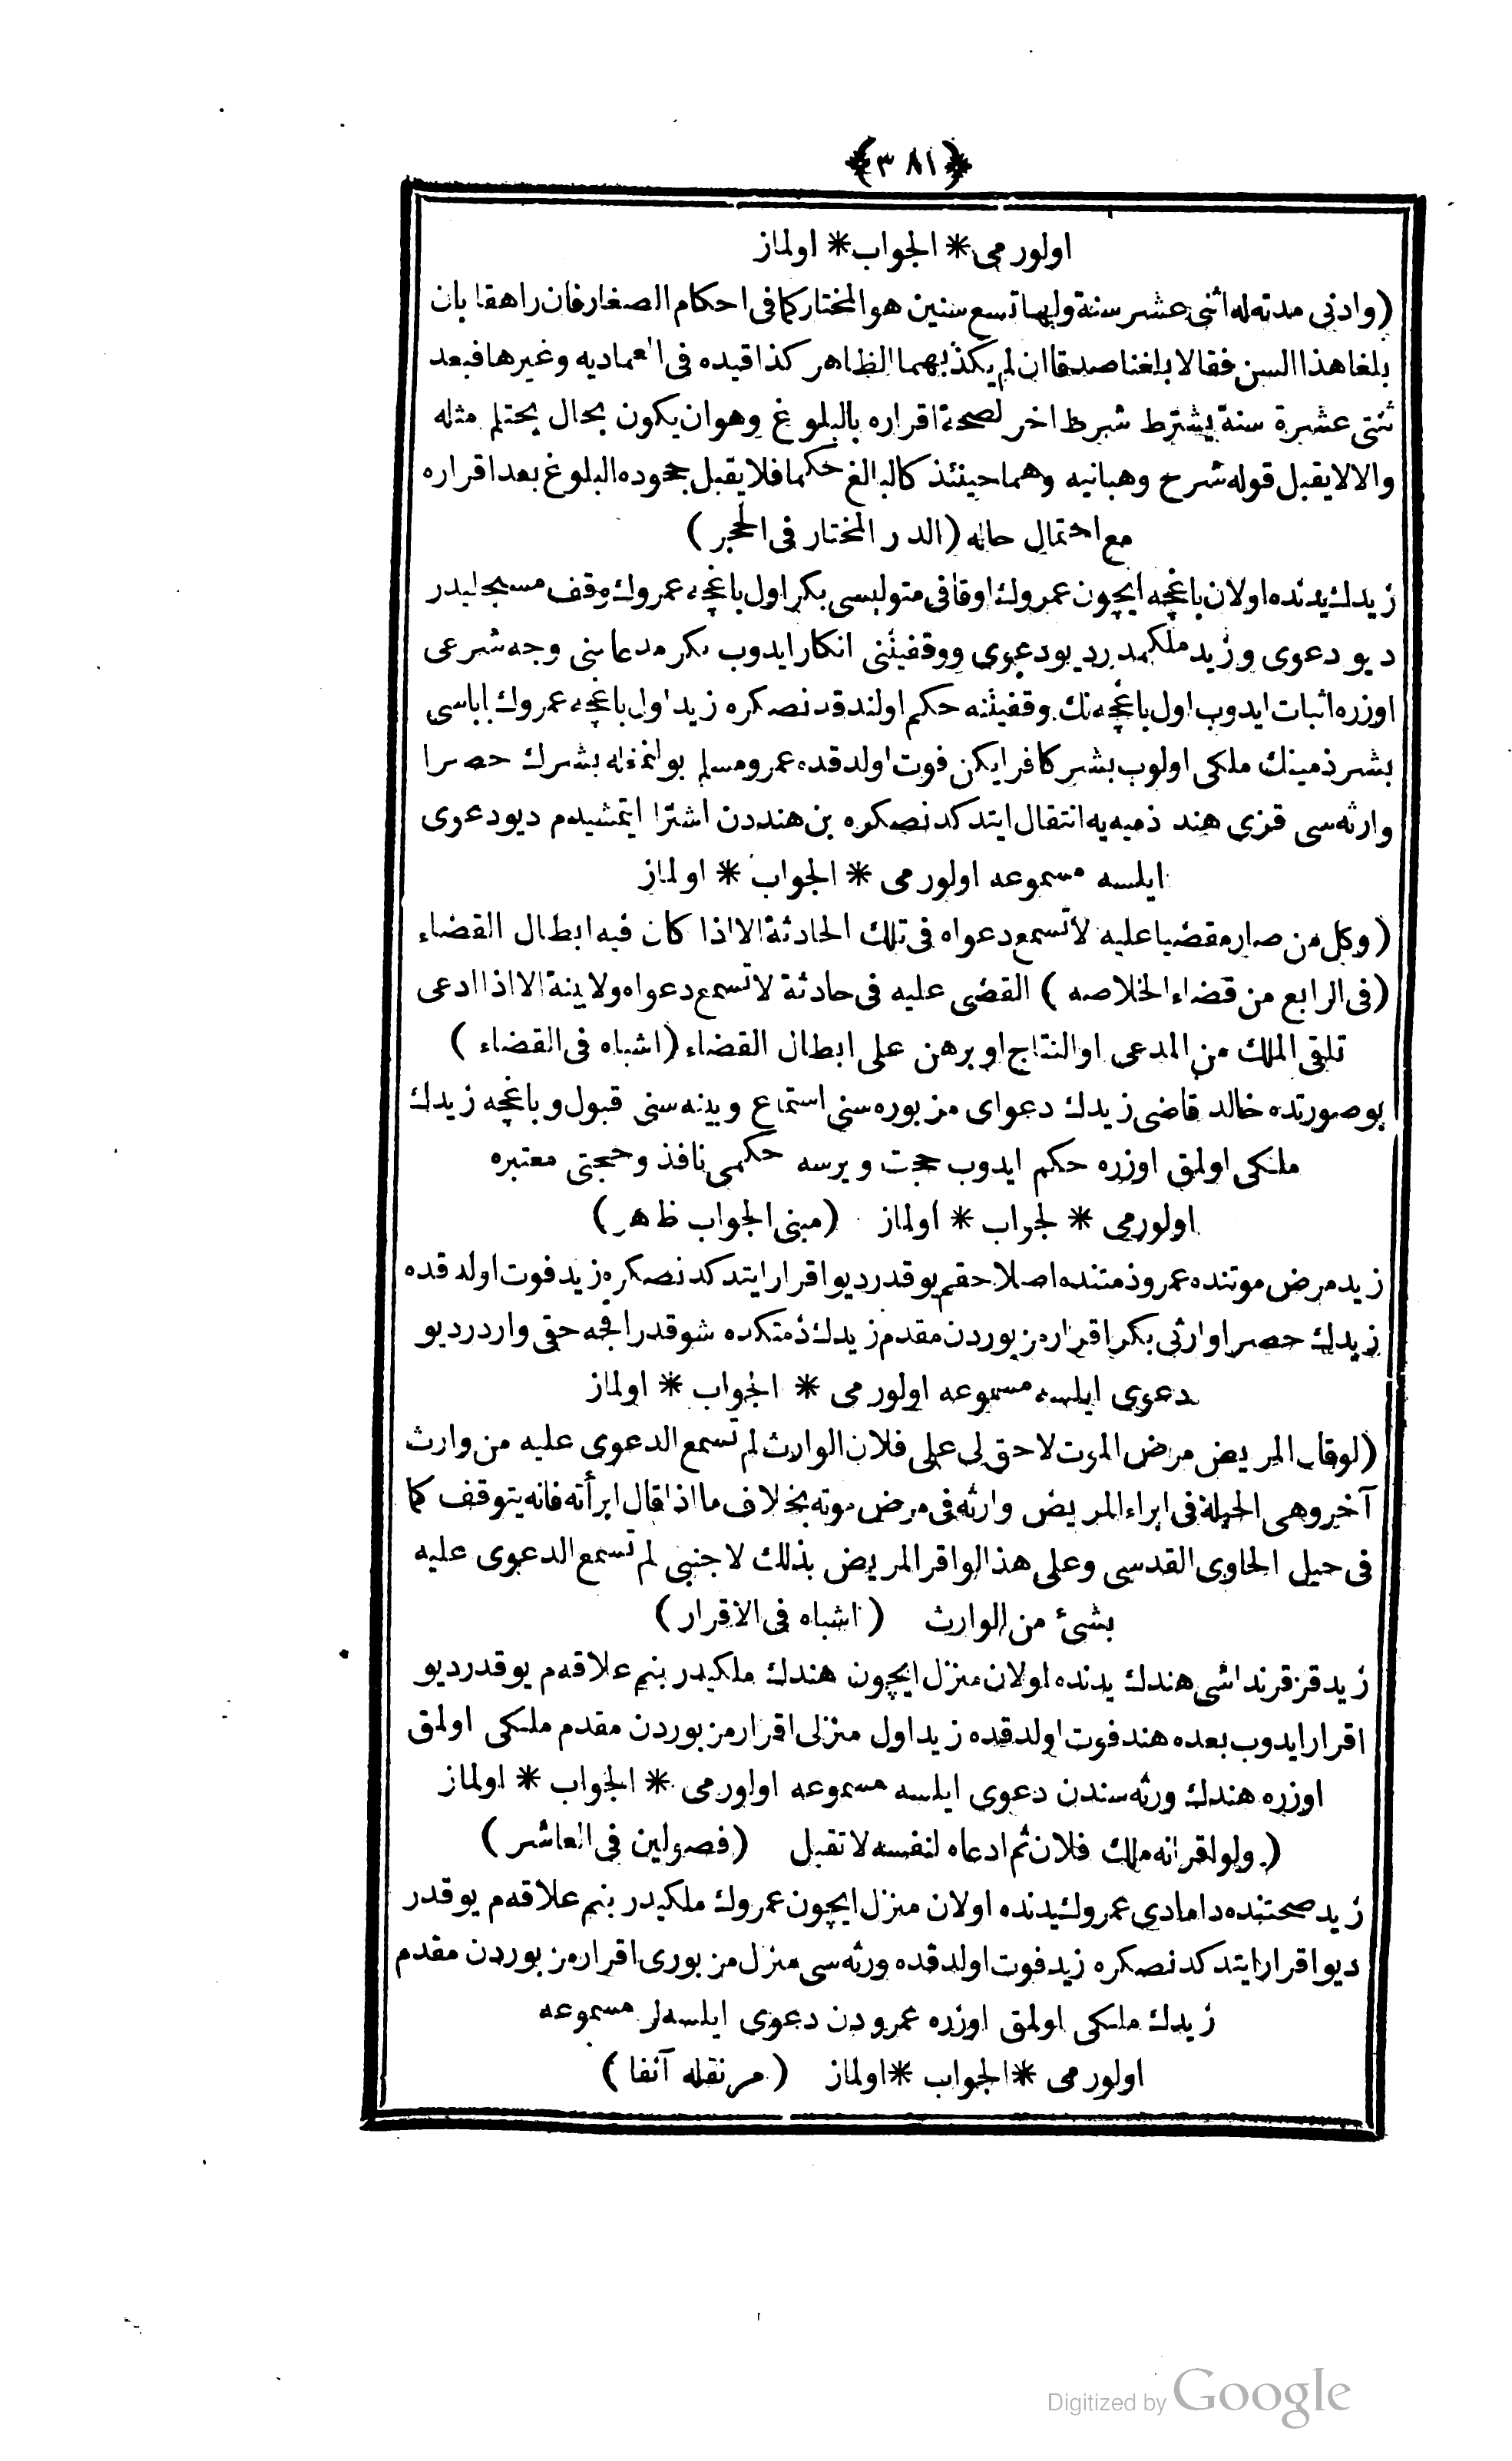 ﴿٣٨١﴾
اولورمی * الجواب * اولماز
(وادنی مدته له اثنی عشر سنة ولها تسع سنین هو المختار كما فی احكام الصغار فان راهقا بان
بلغا هذا السن فقالا بلغنا صدقا ان لم یكذبهما الظاهر كذا قیده فی العمادیه وغیرها فبعد
ثنتی عشرة سنة یشترط شرط اخر لصحة اقراره بالبلوغ وهو ان یكون بحال یحتلم مثله
والا لا یقبل قوله شرح وهبانیه وهما حینئذ كالبالغ حكما فلا یقبل جحوده البلوغ بعد اقراره
مع احتمال حاله (الدر المختار فی الحجر)
زیدك یدنده اولان باغچه ایچون عمروك اوقافی متولیسی بكر اول باغچه عمروك وقف مسجلیدر
دیو دعوی وزید ملكمدر دیو دعوی ووقفیتنی انكار ایدوب بكر مدعاسنی وجه شرعی
اوزره اثبات ایدوب اول باغچه نك وقفیتنه حكم اولندقدنصكره زید اول باغچه عمروك اباسی
بشر ذمینك ملكی اولوب بشر كافر ایكن فوت اولدقده عمرو مسلم بولنمغله بشرك حصرا
وارثه سی قزی هند ذمیه یه انتقال ایتدكدنصكره بن هنددن اشترا ایتمشیدم دیو دعوی
ایلسه مسموعه اولورمی * الجواب * اولماز
(وكل من صار مقضیا علیه لا تسمع دعواه فی تلك الحادثة الا اذا كان فیه ابطال القضاء
(فی الرابع من قضاء الخلاصه) القضی علیه فی حادثة لا تسمع دعواه ولا بینة الا اذا ادعی
تلقی الملك من المدعی او النتاج او برهن علی ابطال القضاء (اشباه فی القضاء)
بو صورتده خالد قاضی زیدك دعوای مزبوره سنی استماع وبینه سنی قبول وباغچه زیدك
ملكی اولمق اوزره حكم ایدوب حجت ویرسه حكمی نافذ وحجتی معتبره
اولورمی * الجواب * اولماز (مبنی الجواب ظاهر)
زید مرض موتنده عمرو ذمتنده اصلا حقم یوقدر دیو اقرار ایتدكدنصكره زید فوت اولدقده
زیدك حصرا وارثی بكر اقرار مزبوردن مقدم زیدك ذمتكده شو قدر اقچه حقی واردر دیو
دعوی ایلسه مسموعه اولورمی * الجواب * اولماز
(لو قال المریض مرض الموت لا حق لی علی فلان الوارث لم تسمع الدعوی علیه من وارث
آخر وهی الحیلة فی ابراء المریض وارثه فی مرض موته بخلاف ما اذا قال ابرأته فانه یتوقف كما
فی حیل الحاوی القدسی وعلی هذا لو اقر المریض بذلك لاجنبی لم تسمع الدعوی علیه
بشیٴ من الوارث (اشباه فی الاقرار)
زید قز قرنداشی هندك یدنده اولان منزل ایچون هندك ملكیدر بنم علاقه م یوقدر دیو
اقرار ایدوب بعده هند فوت اولدقده زید اول منزلی اقرار مزبوردن مقدم ملكی اولمق
اوزره هندك ورثه سندن دعوی ایلسه مسموعه اولورمی * الجواب * اولماز
(ولو اقر انه ملك فلان ثم ادعاه لنفسه لا تقبل (فصولین فی العاشر)
زید صحتنده دامادی عمروك یدنده اولان منزل ایچون عمروك ملكیدر بنم علاقه م یوقدر
دیو اقرار ایتدكدنصكره زید فوت اولدقده ورثه سی منزل مزبوری اقرار مزبوردن مقدم
زیدك ملكی اولمق اوزره عمرودن دعوی ایلسه لر مسموعه
اولورمی * الجواب * اولماز (مر نقله آنفا)
Digitized by Google